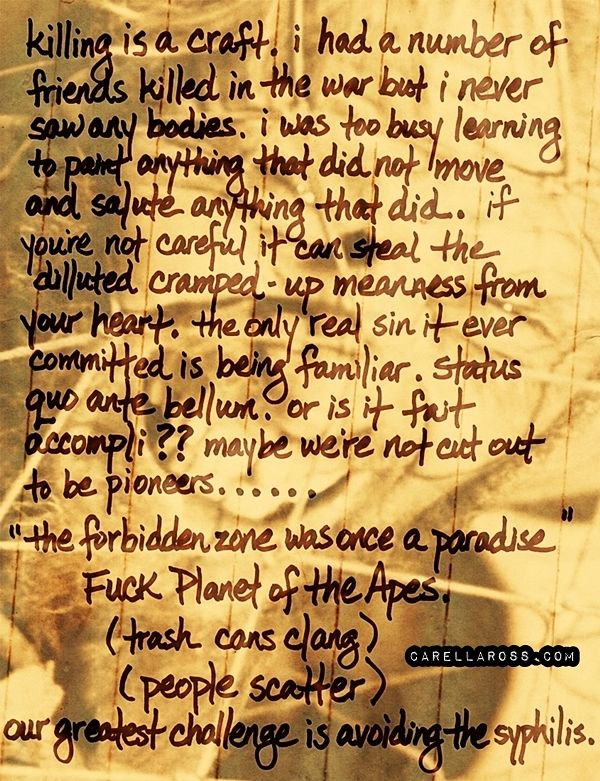 killing is a craft. i had a number of
friends killed in the war but i never
saw any bodies. i was too busy learning
to paint anything that did not move
and salute anything that did. if
you're not careful it can steal the
dilluted cramped-up meanness from
your heart. the only real sin it ever
committed is being familiar. status
quo ante bellum. or is it fait
accompli?? maybe we're not cut out
to be pioneers......
"the forbidden zone was once a paradise"
Fuck Planet of the Apes.
(trash cans clang)
CARELLAROSS.COM
(people scatter)
our greatest challenge is avoiding the syphilis.